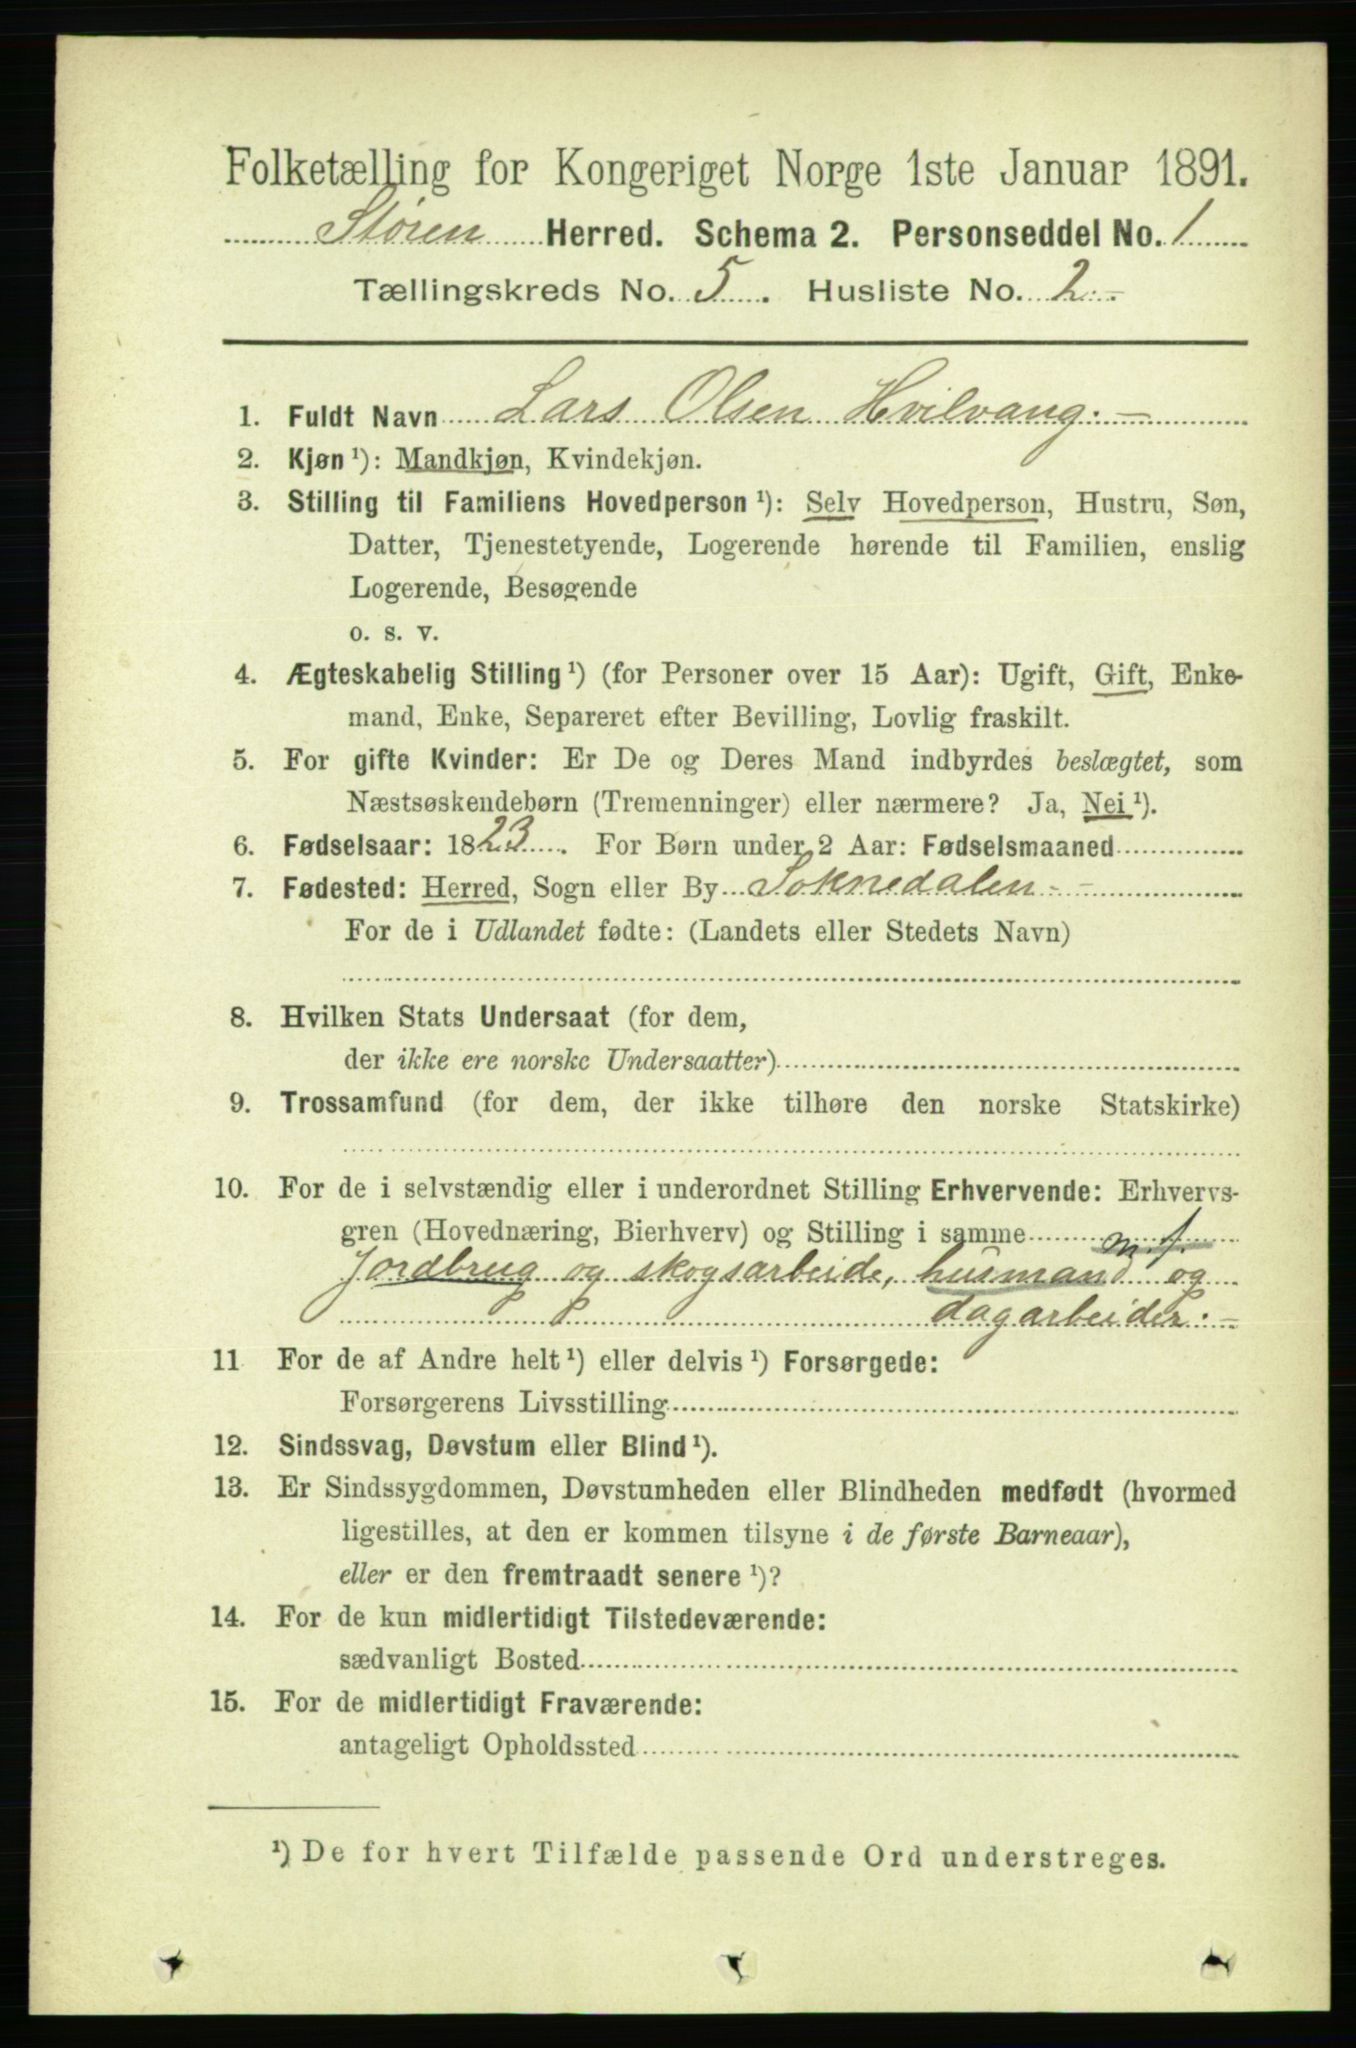 Folketælling for Kongeriget Norge 1ste Januar 1891.
Støren Herred. Schema 2. Personseddel No. 1
Tællingskreds No. 5. Husliste No. 2
1. Fuldt Navn Lars Olsen Hvilvang
2. Kjøn ¹): Mandkjøn, Kvindekjøn.
3. Stilling til Familiens Hovedperson ¹): Selv Hovedperson, Hustru, Søn,
Datter, Tjenestetyende, Logerende hørende til Familien, enslig
Logerende, Besøgende
o. s. v.
4. Ægteskabelig Stilling ¹) (for Personer over 15 Aar): Ugift, Gift, Enke-
mand, Enke, Separeret efter Bevilling, Lovlig fraskilt.
5. For gifte Kvinder: Er De og Deres Mand indbyrdes beslægtet, som
Næstsøskendebørn (Tremenninger) eller nærmere? Ja, Nei ¹).
6. Fødselsaar: 1823. For Børn under 2 Aar: Fødselsmaaned
7. Fødested: Herred, Sogn eller By Soknedalen
For de i Udlandet fødte: (Landets eller Stedets Navn)
8. Hvilken Stats Undersaat (for dem,
der ikke ere norske Undersaatter)
9. Trossamfund (for dem, der ikke tilhøre den norske Statskirke)
10. For de i selvstændig eller i underordnet Stilling Erhvervende: Erhvervs-
gren (Hovednæring, Bierhverv) og Stilling i samme m. j.
Jordbrug og skogsarbeide, husmand og
dagarbeider.
11 For de af Andre helt ¹) eller delvis ¹) Forsørgede:
Forsørgerens Livsstilling
12. Sindssvag, Døvstum eller Blind ¹).
13. Er Sindssygdommen, Døvstumheden eller Blindheden medfødt (hvormed
ligestilles, at den er kommen tilsyne i de første Barneaar),
eller er den fremtraadt senere ¹)?
14. For de kun midlertidigt Tilstedeværende:
sædvanligt Bosted
15. For de midlertidigt Fraværende:
antageligt Opholdssted
¹) De for hvert Tilfælde passende Ord understreges.